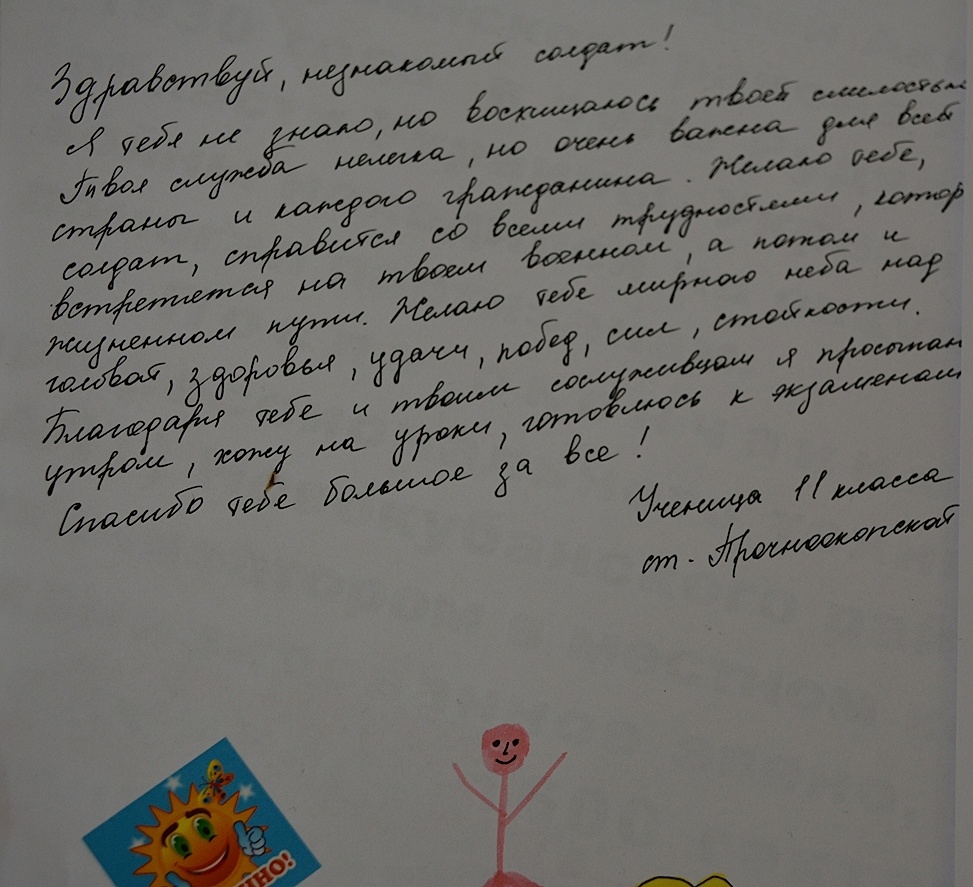 Здравствуй, незнакомый солдат!
Я тебя не знаю, но восхищаюсь твоей смелостью
Твоя служба нелегка, но очень важна для всей
страны и каждого гражданина. Желаю тебе,
солдат, справится со всеми трудностями, котор
встретятся на твоем военном, а потом и
жизненном пути. Желаю тебе мирного неба над
головой, здоровья, удачи, побед, сил, стойкости.
Благодаря тебе и твоим сослуживцам я просыпаю
утром, хожу на уроки, готовлюсь к экзаменам
Спасибо тебе большое за все!
Ученица 11 класса
ст. Прочноокопской
НО!